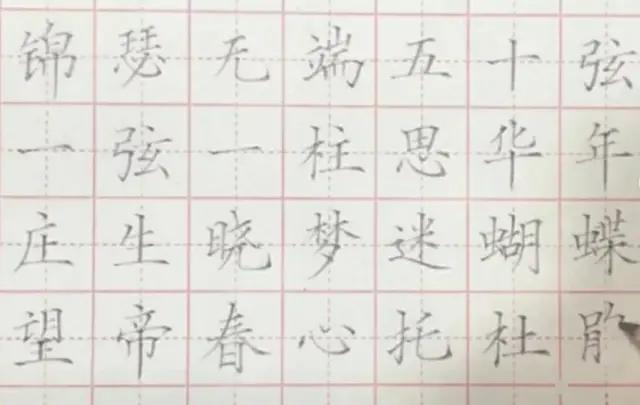 锦瑟无端五十弦
一弦一柱思华年
庄生晓梦迷蝴蝶
望帝春心托杜